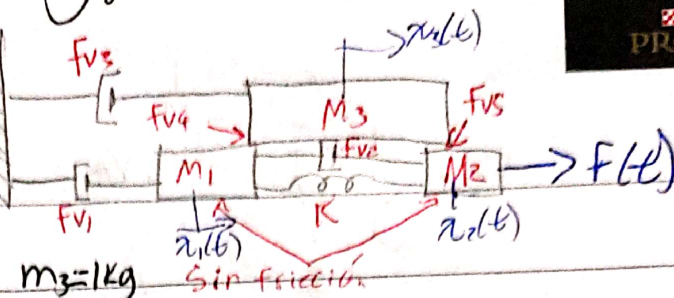 x₃(t)
PR
fv3
M3
fv5
fv4
fv2
M1
M2
F(t)
fv1
K
x₁(t)
x₂(t)
m3=1kg
Sin fricción